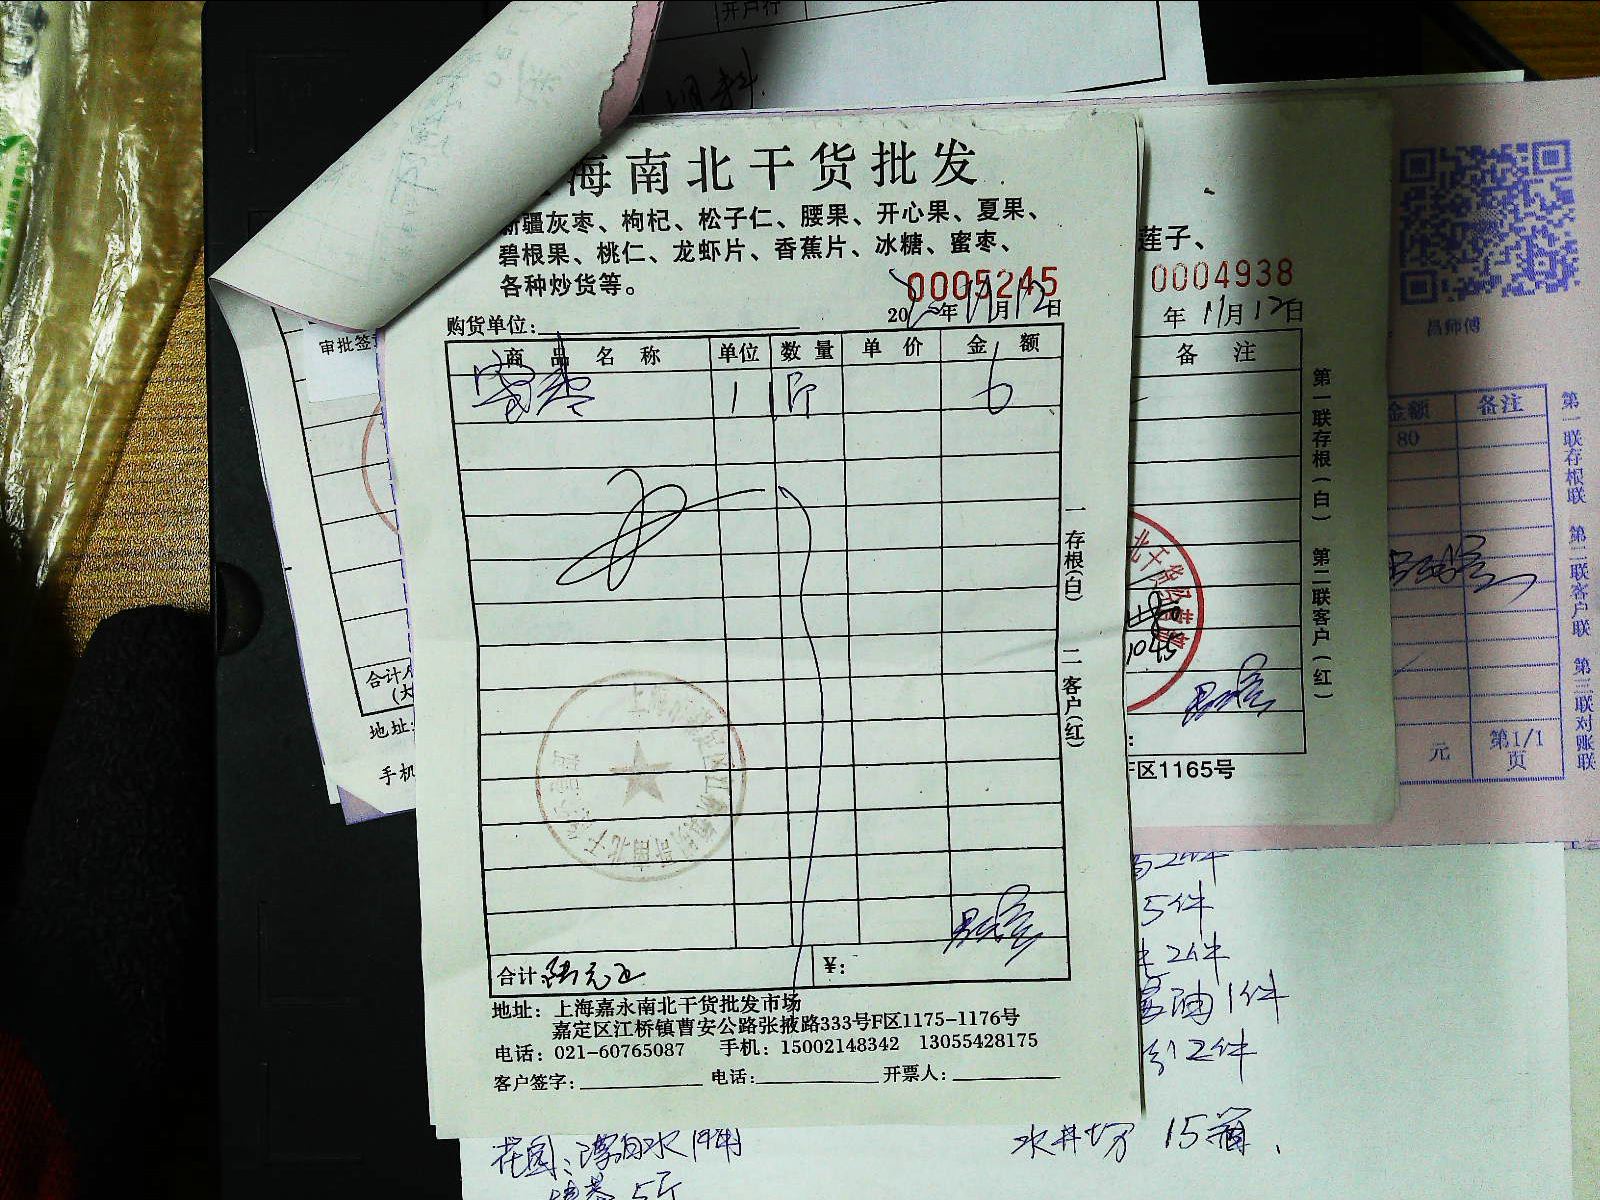 开户行
海南北干货批发
新疆灰枣、枸杞、松子仁、腰果、开心果、夏果、
碧根果、桃仁、龙虾片、香蕉片、冰糖、蜜枣、
各种炒货等。
0005245
购货单位:
20 年 11月12日
商品名称 单位 数量 单价 金额
蜜枣 1 斤 6
一存根(白) 二客户(红)
合计 陆元正 ¥:
地址: 上海嘉永南北干货批发市场
嘉定区江桥镇曹安公路张掖路333号F区1175-1176号
电话: 021-60765087 手机: 15002148342 13055428175
客户签字: 电话: 开票人:
审批签
合计
地址:
手机
莲子、
0004938
年 11月12日
备注
1045
第一联存根(白) 第二联客户(红)
F区1165号
昌师傅
金额 备注
80
元 第1/1页
第一联存根联 第二联客户联 第三联对账联
5件
2件
油1件
2件
花园: 漂白水1件
5斤
水井坊 15瓶.